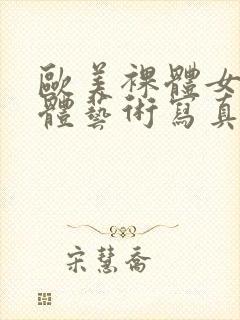 歐美裸體女
體藝術寫真
宋慧喬